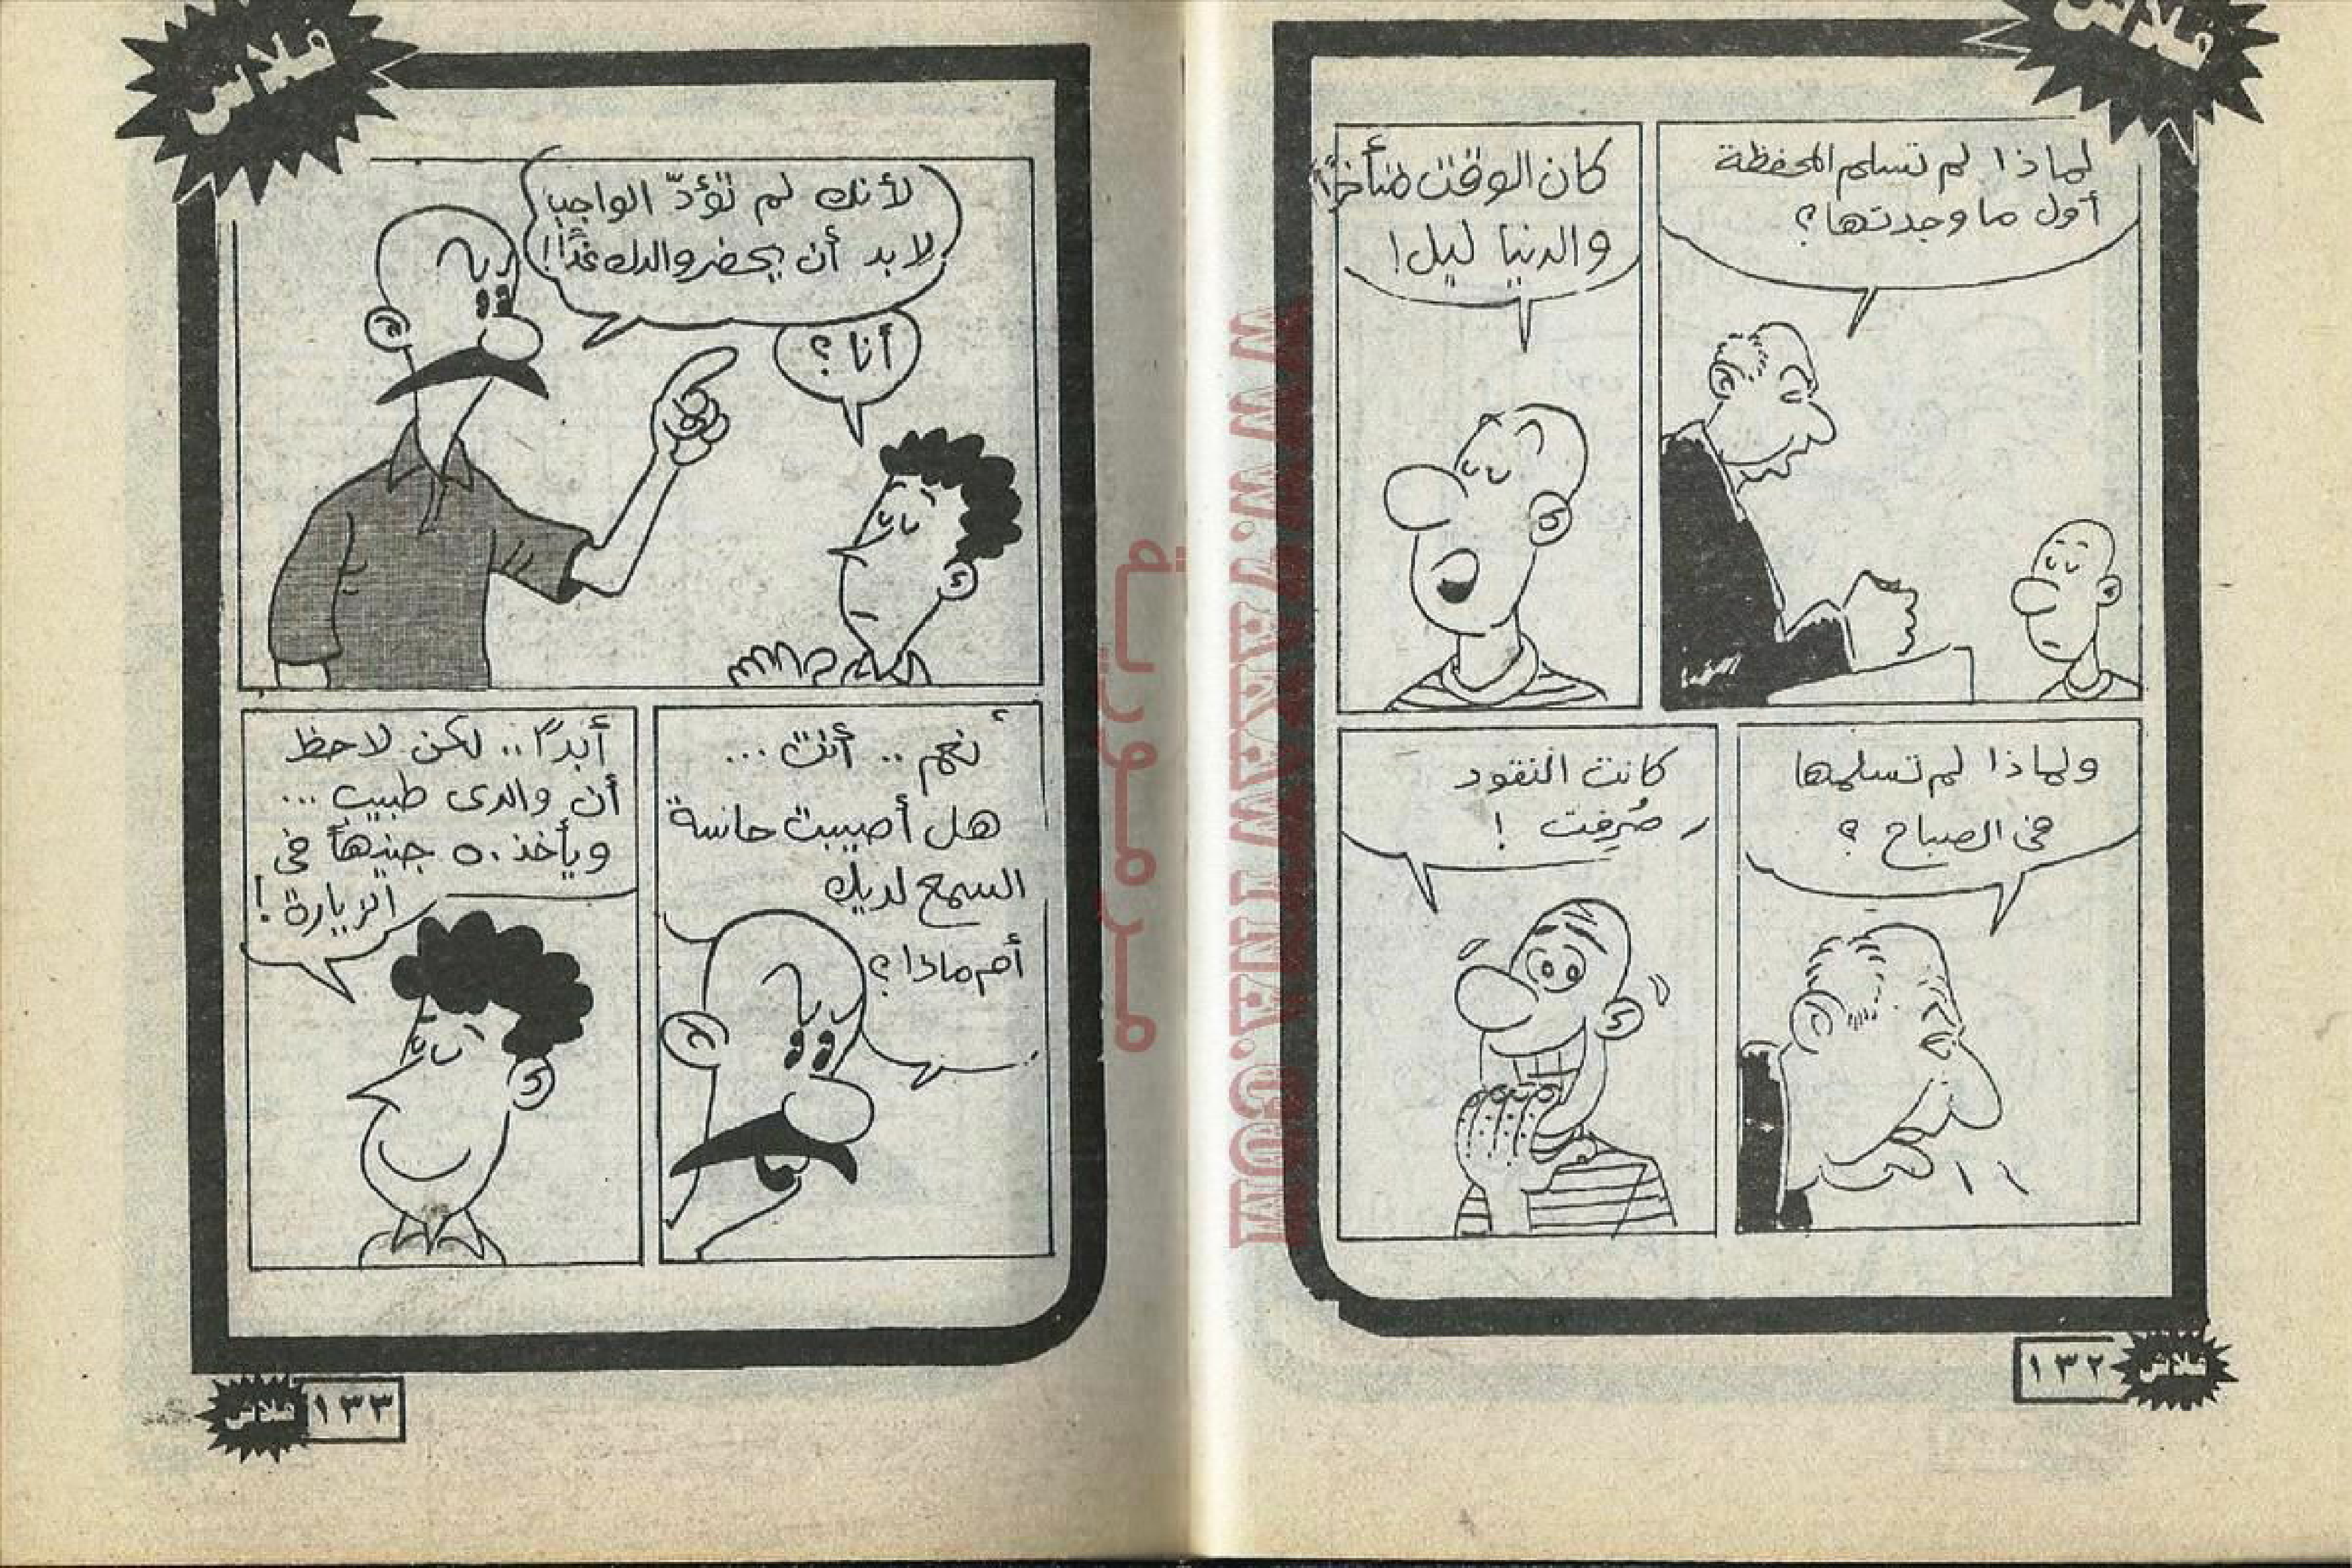 فلاش
لماذا لم تسلم المحفظة
أول ما وجدتها؟
كان الوقت متأخرًا
والدنيا ليل!
ولماذا لم تسلمها
فى الصباح ؟
كانت النقود
صُرِفت !
١٣٢
فلاش
فلاش
لأنك لم تؤدّ الواجب
لا بد أن يحضر والدك غدًا!
أنا ؟
نعم .. أنت ...
هل أصيبت حاسة
السمع لديك
أم ماذا؟
أبدًا .. لكن لاحظ
أن والدى طبيب ...
ويأخذ ٥٠ جنيهًا فى
الزيارة !
١٣٣
فلاش